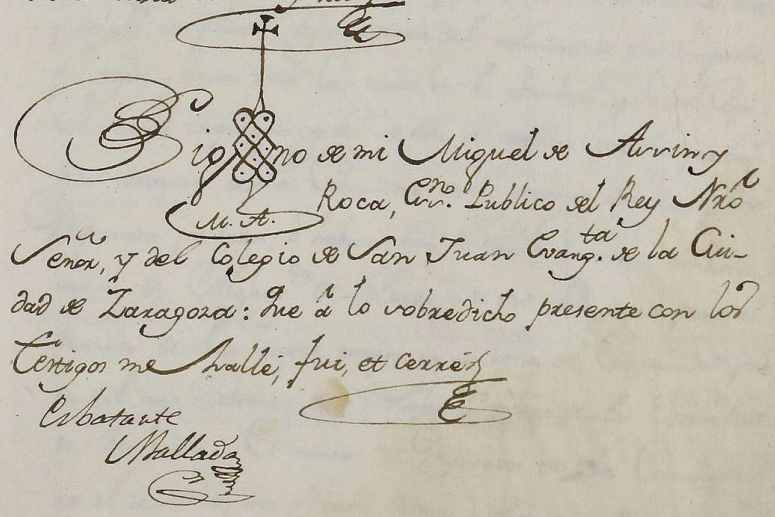 Signo de mi Miguel de Arrin y
Roca, Essno. Publico del Rey Nrõ
M. A.
Señor, y del Colegio de San Juan Evangta. de la Ciu-
dad de Zaragoza: Que â lo sobredicho presente con los
Testigos me hallé, fui, et cerré
Es bastante
Mallada